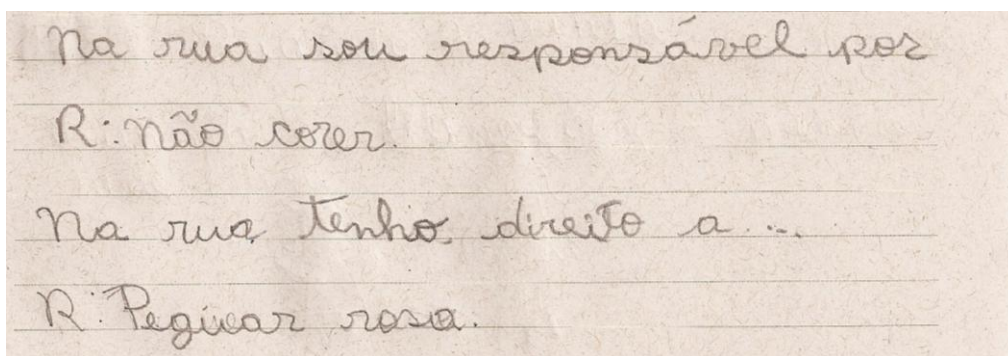 Na rua sou responsável por
R: Não corer.
Na rua tenho direito a ...
R: Pegivar rosa.